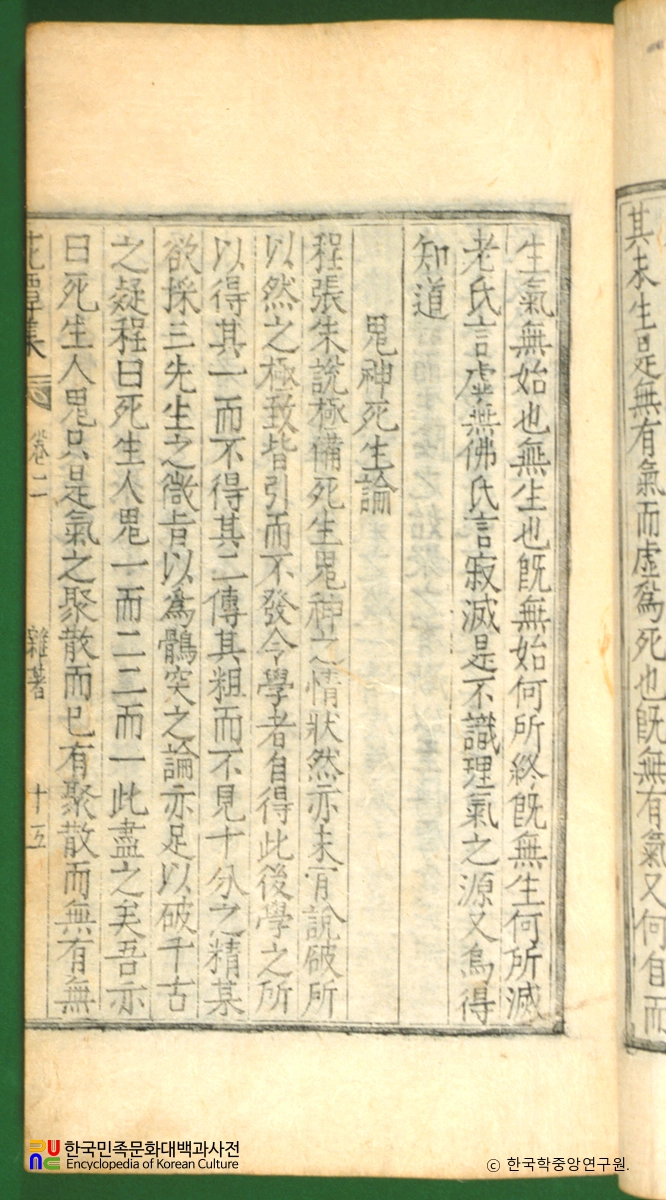 其未生是無有氣而虛爲死也旣無有氣又何自而
生氣無始也無生也旣無始何所終旣無生何所滅
老氏言虛無佛氏言寂滅是不識理氣之源又烏得
知道
鬼神死生論
程張朱說極備死生鬼神之情狀然亦未有說破所
以然之極致皆引而不發令學者自得此後學之所
以得其一而不得其二傳其粗而不見十分之精某
欲採三先生之微旨以爲鶻突之論亦足以破千古
之疑程曰死生人鬼一而二二而一此盡之矣吾亦
曰死生人鬼只是氣之聚散而已有聚散而無有無
花潭集 卷二 雜著 十五
한국민족문화대백과사전
Encyclopedia of Korean Culture
© 한국학중앙연구원.